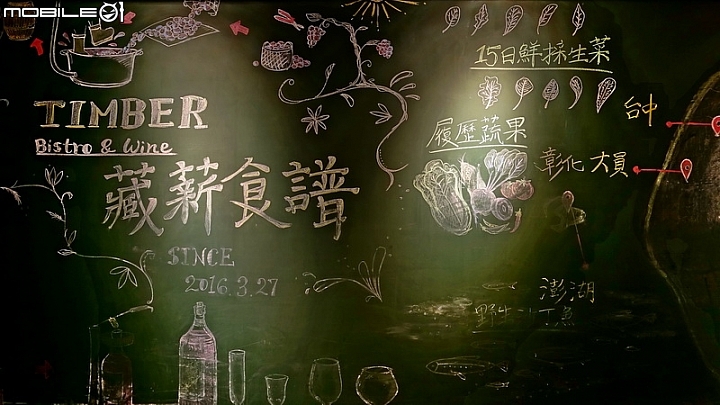 MOBILE01
TIMBER
Bistro & Wine
藏薪食譜
SINCE
2016.3.27
15日鮮採生菜
履歷蔬果
台中
彰化 大員
澎湖
野生
魚